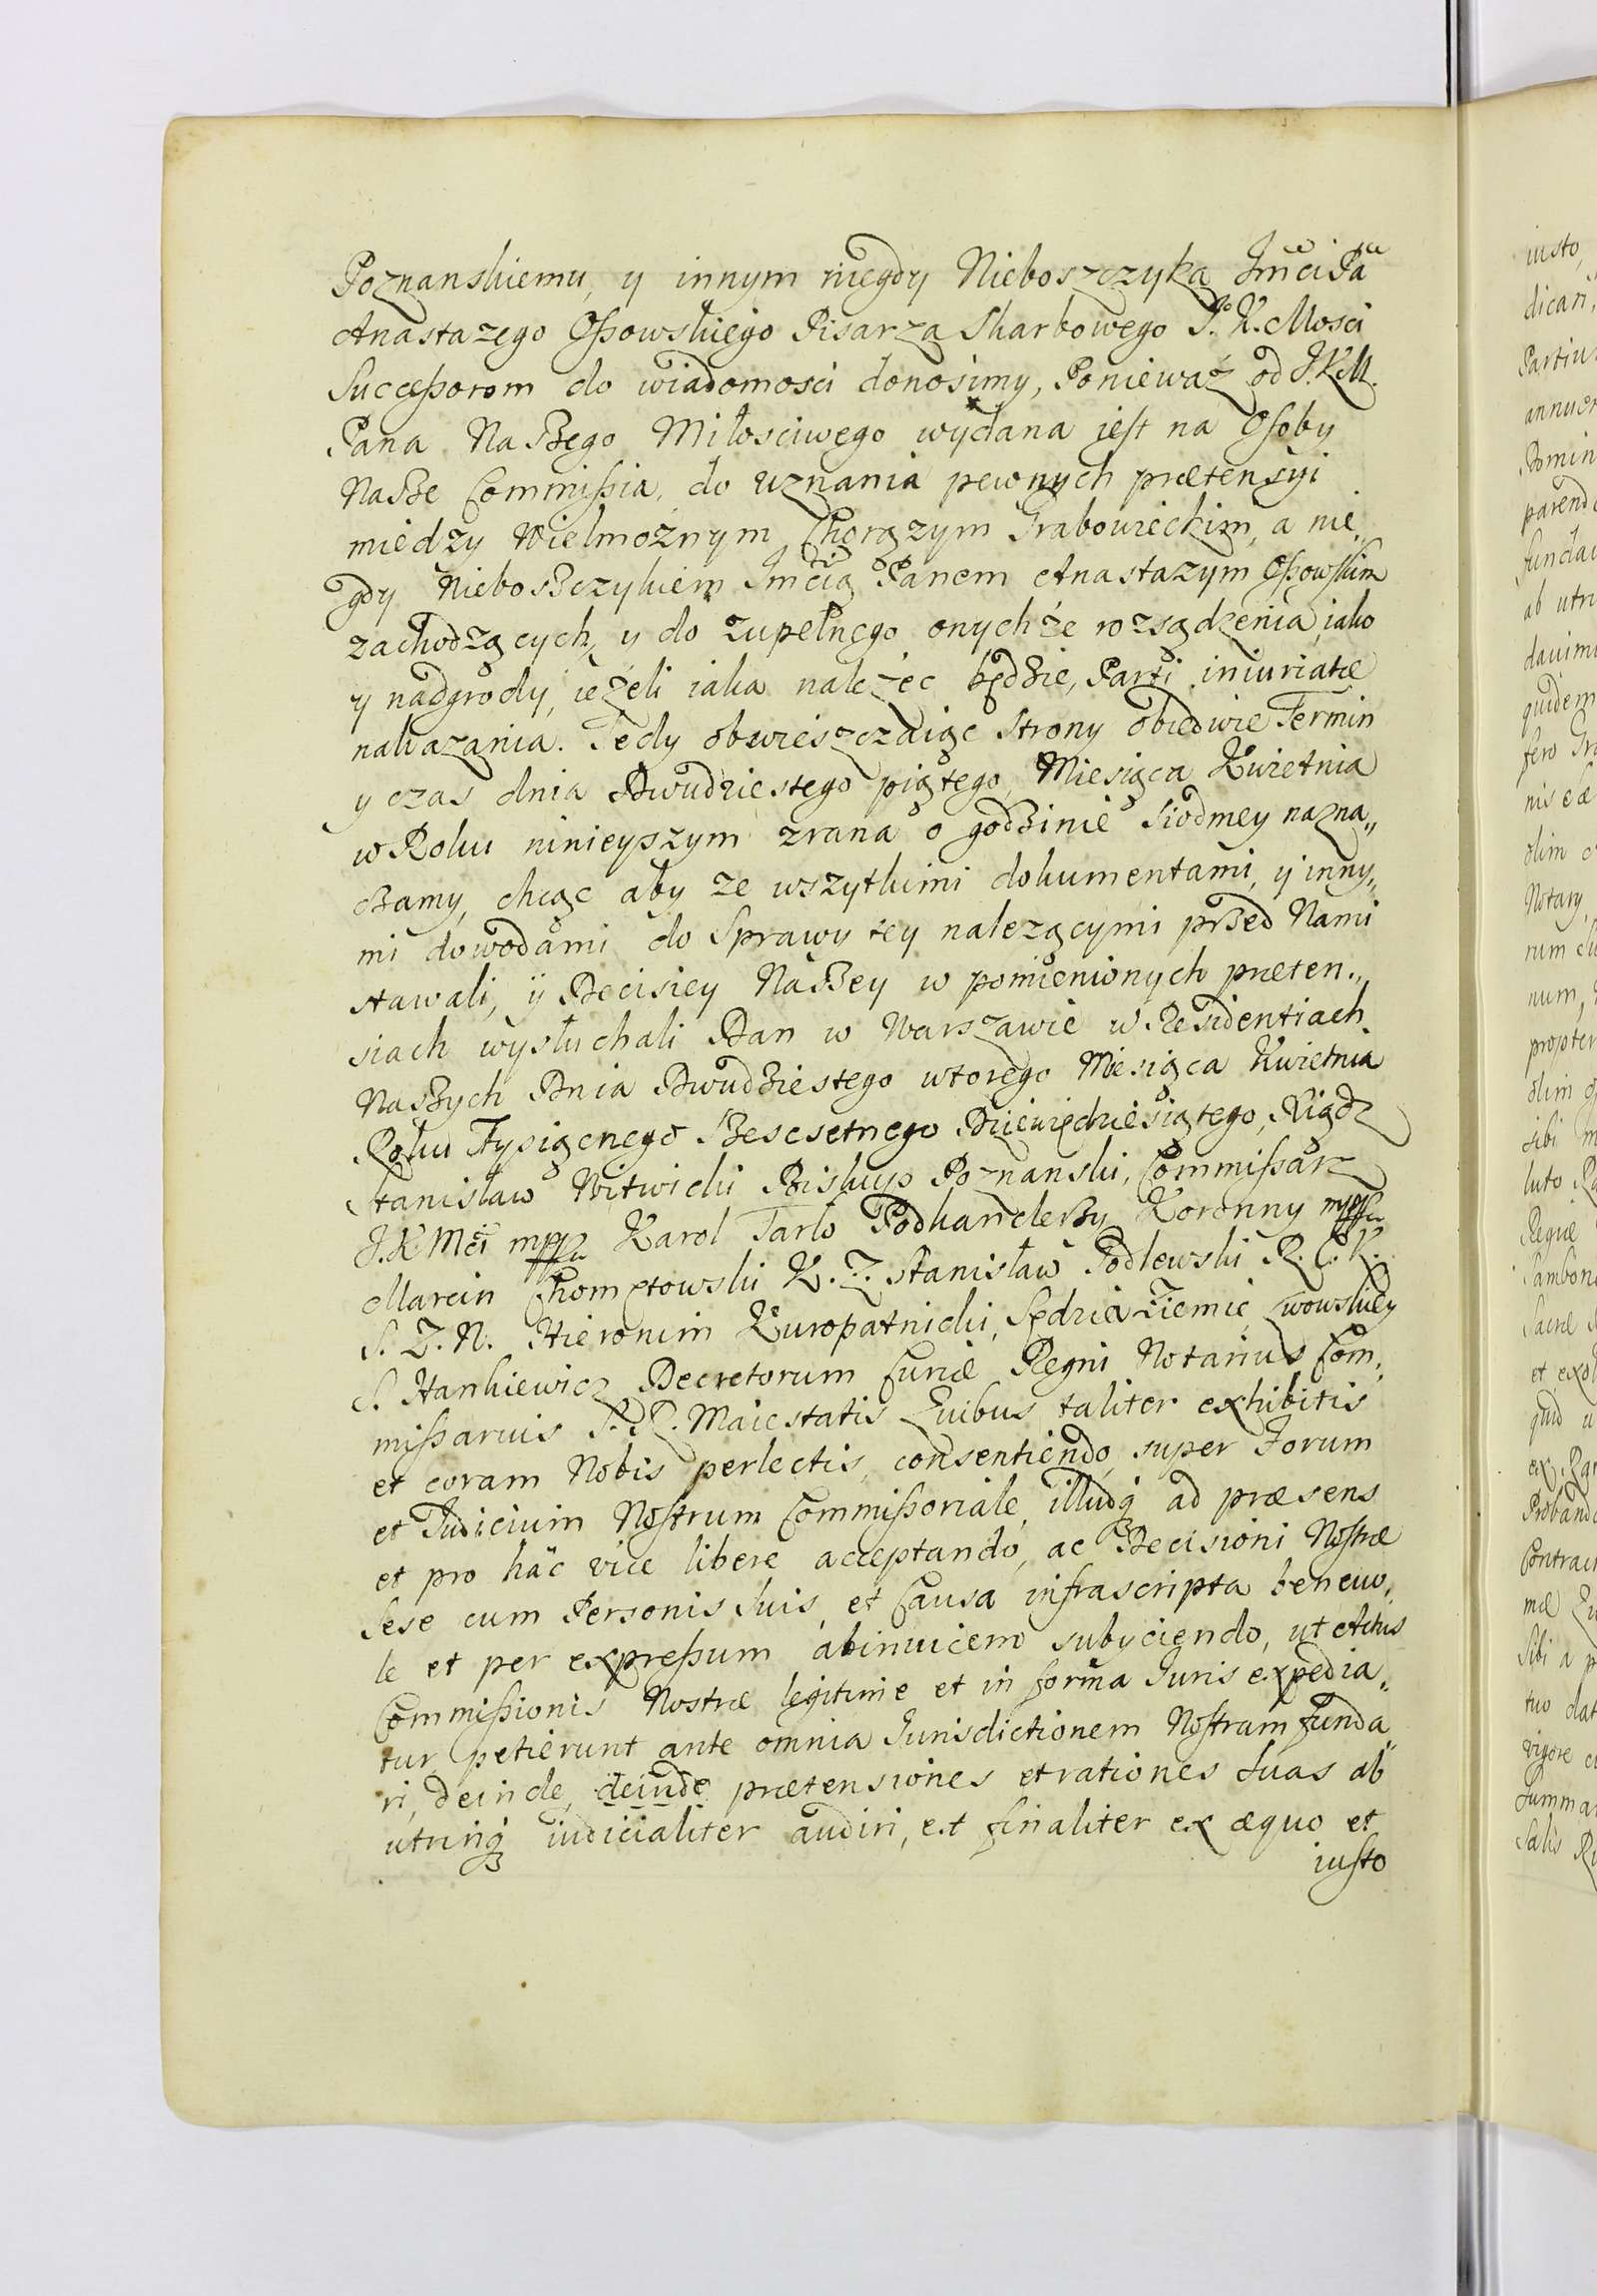 Poznanskiemu, y innym niegdy Nieboszczyka Jmci Pa
Anastazego Ossowskiego Pisarza Skarbowego J. K. Mosci
Successorom do wiadomosci donosimy, Poniewaz od J.K.M.
Pana Naszego Miłosciwego wydana iest na Osoby
Nasze Commissia, do uznania pewnych prætensyi
miedzy Wielmoznym Chorązym Grabowieckim, a nie,
gdy Nieboszczykiem Jmcią Panem Anastazym Ossowskim
zachodzących, y do zupełnego onychze rozsądzenia, iako
y nadgrody, iezeli iaka nalezec będzie, Parti iniuriatæ
nakazania. Tedy obwieszczaiąc Strony obiedwie Termin
y czas dnia Dwudziestego piątego Miesiąca Kwietnia
w Roku ninieyszym zrana o godzinie Siodmey nazna„
czamy, chcąc aby ze wszytkimi dokumentami, y inny„
mi dowodami do Sprawy tey nalezącymi przed Nami
stawali, y Decisiey Naszey w pomienionych præten„
siach wysłuchali Dan w Warszawie w Residentiach
Naszych Dnia Dwudziestego wtorego Miesiąca Kwietnia
Roku Tysiącnego Szescsetnego Dziewiędziesiątego, Xiądz
Stanisław Witwicki Biskup Poznanski, Commissarz
J.K Mci mppa Karol Tarło Podkanclerzy Koronny mppa
Marcin Chomętowski K. Z. Stanisław Podlewski R. C. K.
S. Z. N. Hieronim Kuropatnicki, Sędzia Ziemie Lwowskiey
S. Hankiewicz Decretorum Curiæ Regni Notarius Com,
missarius S. R. Maiestatis Quibus taliter exhibitis
et coram Nobis perlectis, consentiendo super Forum
et Judicium Nostrum Commissoriale, illudq3 ad præsens
et pro hac vice libere acceptando, ac Decisioni Nostræ
sese cum Personis Suis, et Causa infrascripta beneuo,
le et per expressum abinuicem subyciendo, ut Actus
Commissionis Nostræ legitime et in forma Iuris expedia„
tur, petierunt ante omnia Iurisdictionem Nostram funda„
ri, deinde, deinde prætensiones et rationes Suas ab
utrinq3 iudicialiter audiri, et finaliter ex æquo et
iusto
iusto,
dicari,
annuen
parendo
ab utri
quidem
olim
Notary
num,
propter
Regiæ
Sacræ
ex Par
vigore